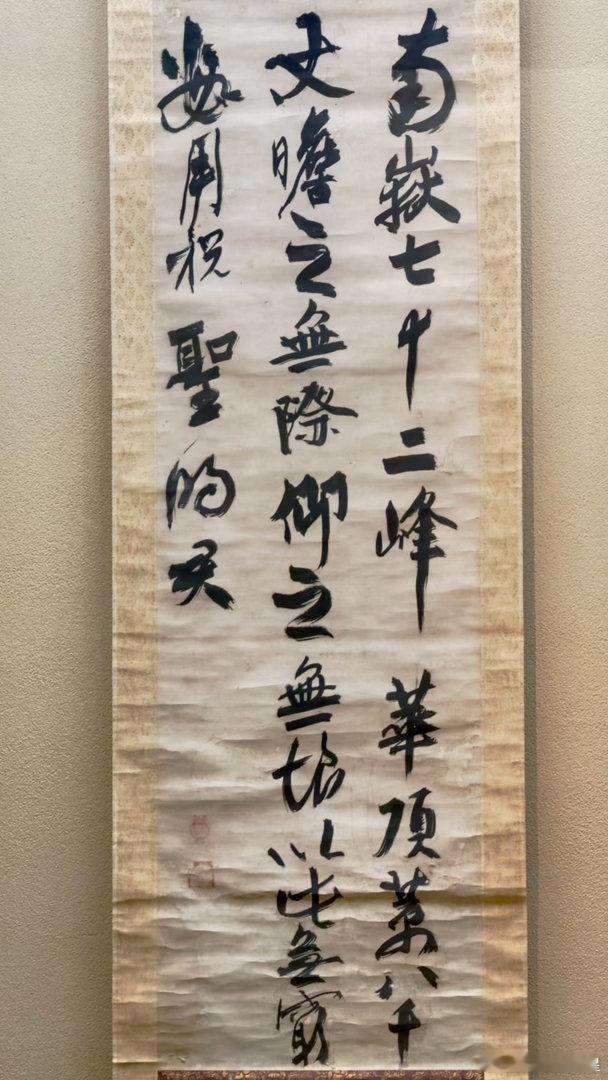 南嶽七十二峰 華頂萬八千
丈瞻之無際仰之無垠以此無窮
數用祝 聖明君